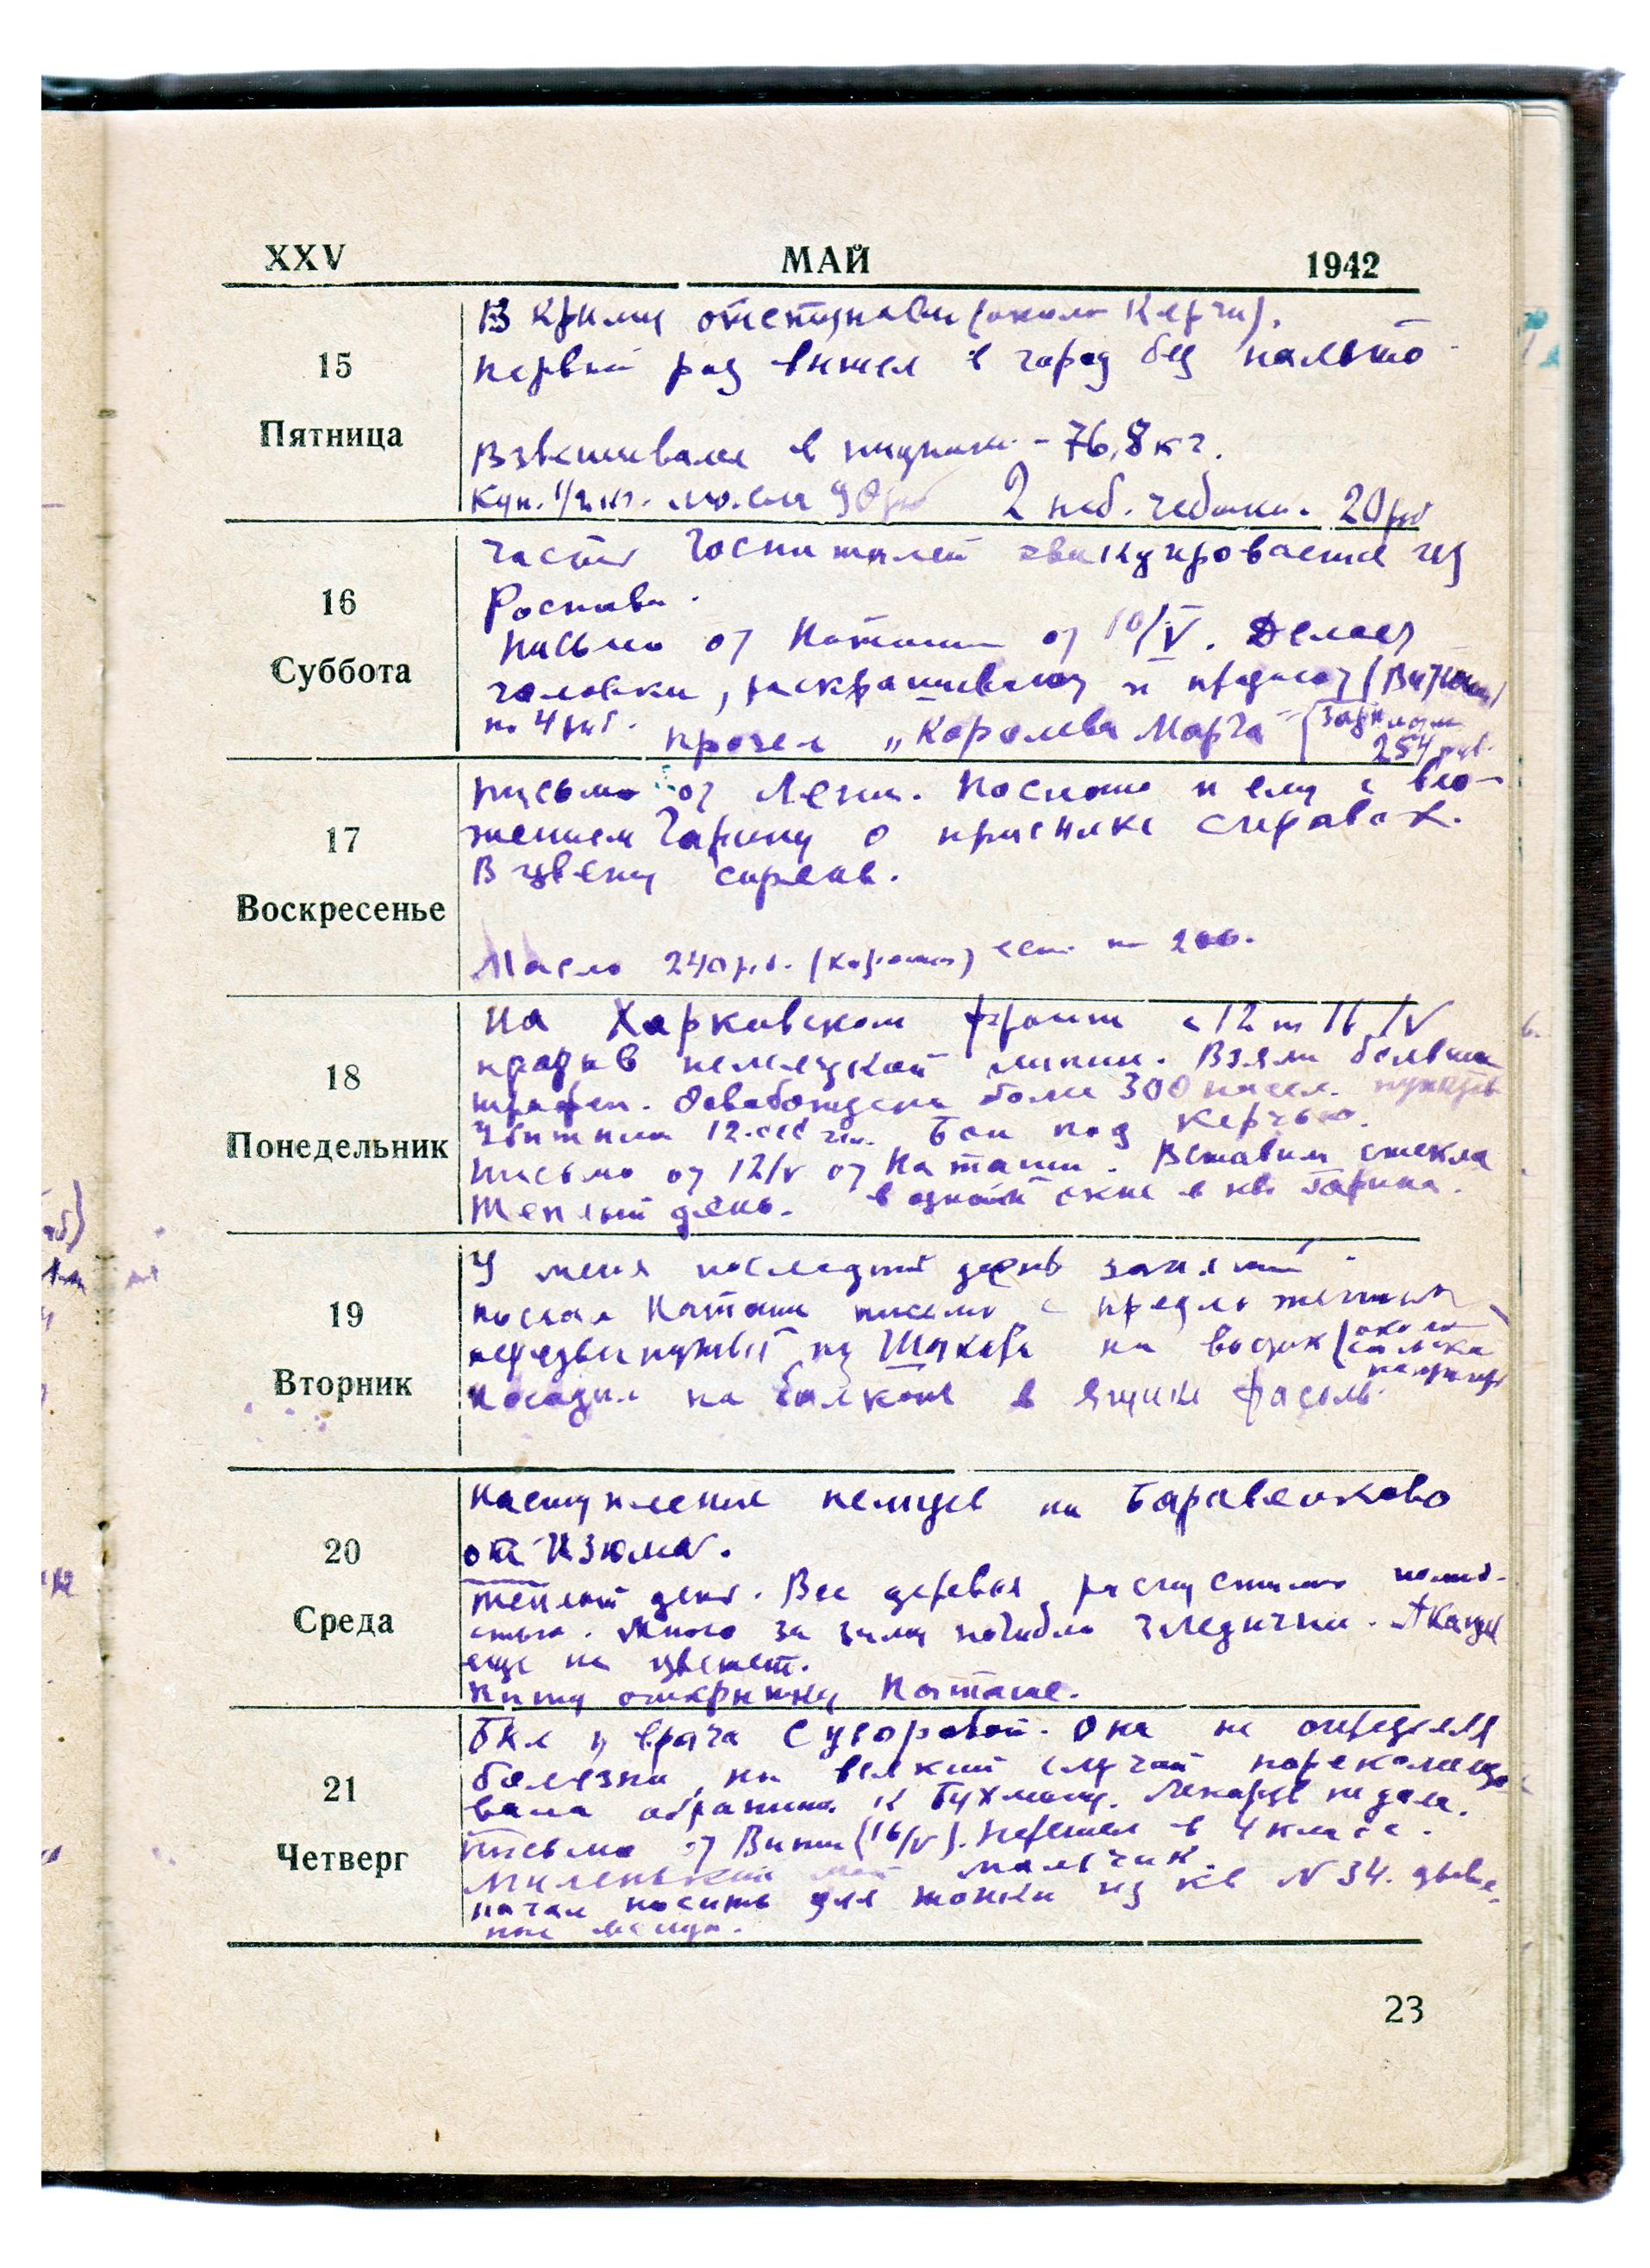 XXV МАЙ 1942
15
Пятница
В Крыму отступаем (около Керчи).
Первый раз вышел в город без пальто
Взвешивался в - 76,8 кг.
Куп. 1/2 кг. масла 90 руб 2 неб. чебака. 20 руб
16
Суббота
Часть госпиталей эвакуировается из
Ростова.
Письмо от Наташи от 10/V. Делает
головки, раскрашивают и продают
по 4 руб. Прочел „Королева Марго"
254 руб.
17
Воскресенье
Письмо от Лени. Послано и ему с вло-
жением Гарину о присылке справок.
В цвету сирень.
Масло 240 руб. (хорошее) есть по 200.
18
Понедельник
На Харьковском фронте с 12 по 16/V
прорыв немецкой линии. Взяли большие
трофеи. Освобождено более 300 насел. пунктов
Убитыми 12.000 чел. Бои под Керчью.
Письмо от 12/V от Наташи. Вставили стекла
Теплый день. в одной окне в кв Гарина.
19
Вторник
У меня последний день занятий.
Послал Наташе письмо с предложением
из на
Посадил на балконе в ящике фасоль.
20
Среда
Наступление немцев на Баравенково
от Изюма.
Теплый день. Все деревья распустились полно-
стью. Много за зиму погибло гледичии. Акации
еще не цветет.
Пишу открытку Наташе.
21
Четверг
Был у врача Суворовой. Она не определя
болезни, на всякий случай порекомендо-
вала обратиться к Бухману. Лекарств не дала.
Письмо от Вити (16/V). Перешел в 4 класс.
Миленький мой мальчик.
Начал носить для топки из кв N 34.
23